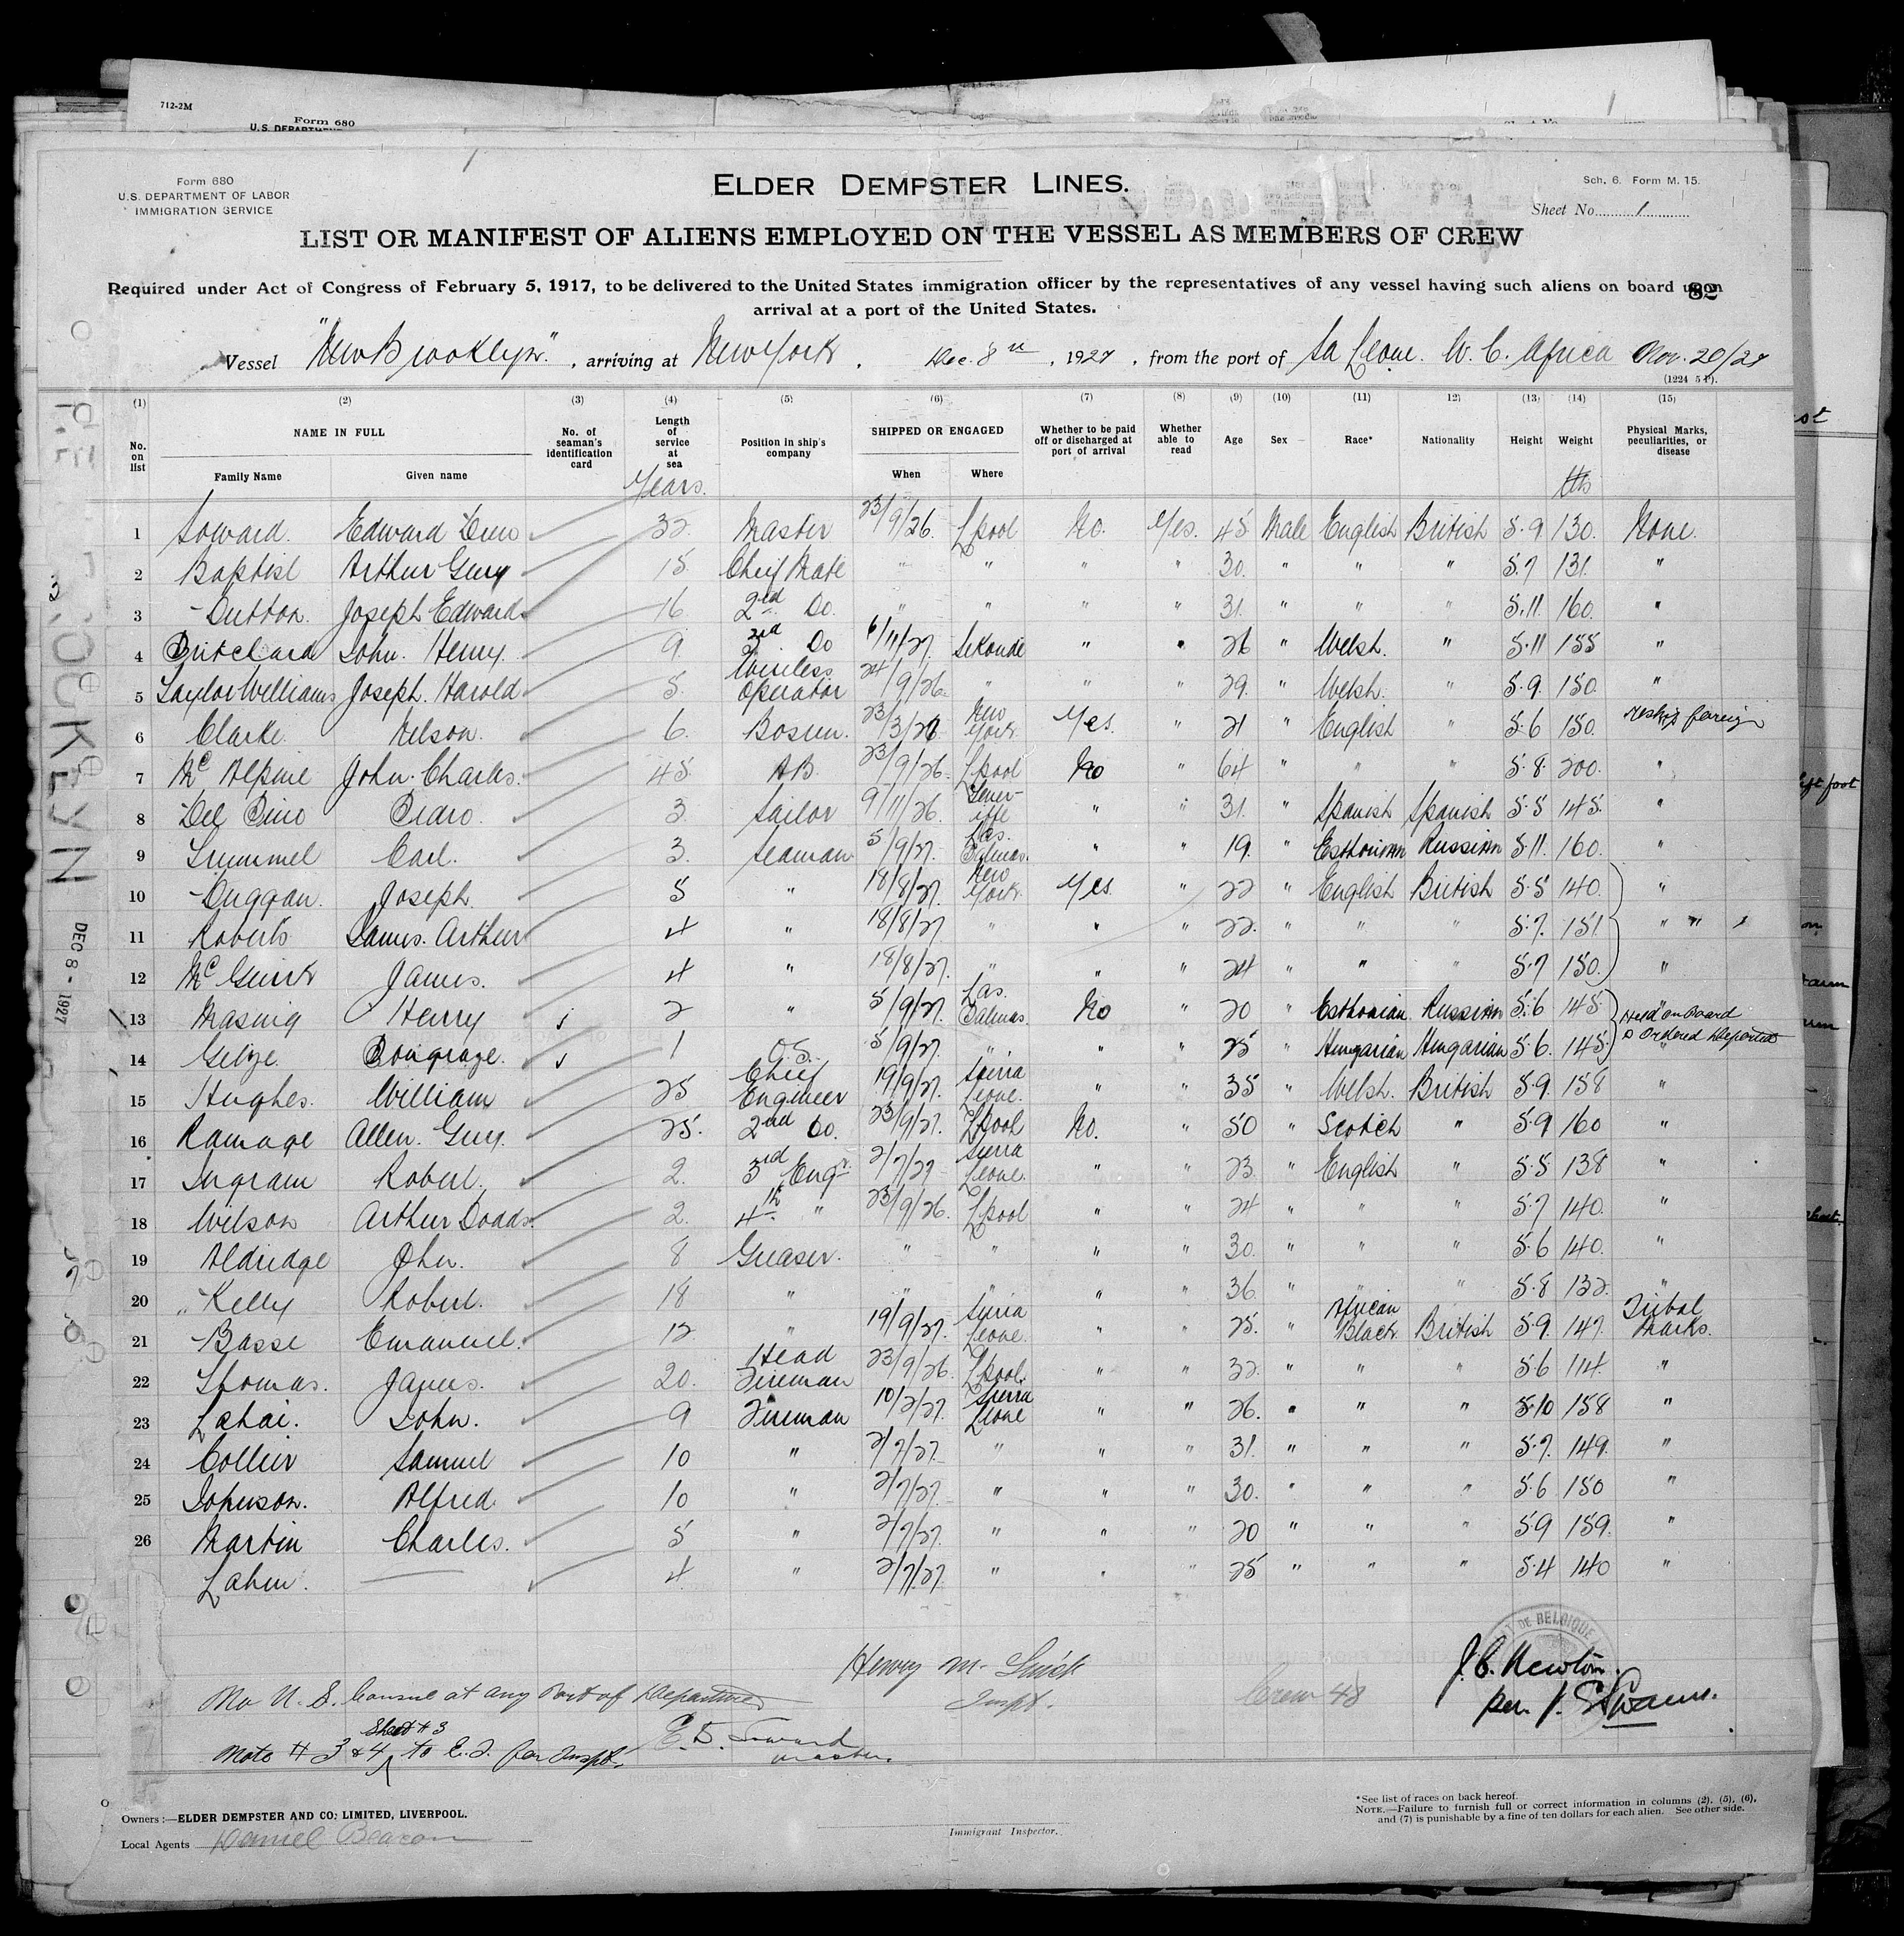 712-2M
Form 680
U.S. DEPARTMENT
1
Form 680
U.S. DEPARTMENT OF LABOR
IMMIGRATION SERVICE
ELDER DEMPSTER LINES.
Sch. 6. Form M. 15.
Sheet No. 1
LIST OR MANIFEST OF ALIENS EMPLOYED ON THE VESSEL AS MEMBERS OF CREW
Required under Act of Congress of February 5, 1917, to be delivered to the United States immigration officer by the representatives of any vessel having such aliens on board upon
82
arrival at a port of the United States.
Vessel "New Brooklyn", arriving at New York, Dec. 8th, 1927, from the port of Sa Leone. W. C. Africa Nov. 20/27
(1224 5 P).
(1) (2) (3) (4) (5) (6) (7) (8) (9) (10) (11) 12) (13) (14) (15)
No. on list NAME IN FULL Family Name Given name No. of seaman's identification card Length of service at sea Position in ship's company SHIPPED OR ENGAGED When Where Whether to be paid off or discharged at port of arrival Whether able to read Age Sex Race* Nationality Height Weight Physical Marks, peculiarities, or disease
Years. lbs
1 Soward. Edward 32 Master 23/9/26. L'pool No. Yes. 45 Male English British 5.9 130. None.
2 Baptist Arthur Guy 15. Chief Mate " " " " 30. " " " 5.7 131. "
3 Dutton. Joseph Edward 16 2nd Do. " " " " 31. " " " 5.11. 160. "
4 Pritchard John. Henry. 9 3rd Do 6/11/27. Sekonde " " 26 " Welsh. " 5.11 155 "
5 Taylor Williams Joseph. Harold 5. Wireless Operator 24/9/26. " " " 29. " Welsh. " 5.9. 150. "
6 Clarke. Nelson. 6. Bosun. 23/3/27 New York Yes. " 21 " English " 5.6 150. Reship foreign
7 Mc Alpine John. Charles. 45. AB. 23/9/26. L'pool No " 64 " " " 5.8. 200. "
8 Del Pino Pedro. 3. Sailor 9/11/26. Tener-iffe " " 31. " Spanish Spanish 5.5 145. "
9 Carl. 3. Seaman. 5/9/27. Las. Palmas. " " 19. " Esthonian Russian 5.11. 160. "
10 Duggan. Joseph. 5 " 18/8/27. New York. Yes. " 22 " English British 5.5 140. "
11 Roberts James. Arthur 4 " 18/8/27 " " " 22. " " " 5.7. 151. " "
12 Mc Guirk James. 4 " 18/8/27. " " " 24 " " " 5.7 150. "
13 Masing Henry s 2 " 5/9/27. Las. Palmas. No " 20 " Esthonian. Russian 5.6 145. Held on board
14 s 1 O.S. 5/9/27. " " " 25 " Hungarian Hungarian 5.6. 145. & Ordered Deported
15 Hughes. William 25 Chief Engineer 19/9/27. Sierra Leone. " " 35 " Welsh. British 5.9. 158 "
16 Ramage Allen. Guy. 25. 2nd Do. 23/9/27. L'pool No. " 50 " Scotch " 5.9 160 "
17 Ingram Robert. 2. 3rd Engr 2/7/27 Sierra Leone. " " 23. " English " 5.5 138 "
18 Wilson Arthur Dodds. 2. 4th " 23/9/26. L'pool " " 24 " " " 5.7 140. "
19 Aldridge John. 8 Greaser. " " " " 30. " " " 5.6 140. "
20 Kelly Robert. 18 " " " " " 36. " " " 5.8 132. "
21 Basse Emanuel. 12 " 19/9/27. Sierra Leone. " " 25. " African Black. British 5.9. 147. Tribal Marks.
22 Thomas. James. 20. Head Fireman 23/9/26. L'pool. " " 32. " " " 5.6 114. "
23 Lahai. John. 9 Fireman 10/2/27. Sierra Leone " " 26. " " " 5.10 158 "
24 Collier Samuel 10 " 2/7/27. " " " 31. " " " 5.7. 149. "
25 Johnson. Alfred. 10 " 2/7/27. " " " 30. " " " 5.6 150 "
26 Martin Charles. 5 " 2/7/27. " " " 20 " " " 5.9 159. "
— 4 " 2/7/27. " " " 25 " " " 5.4 140 "
DEC 8 - 1927
Henry M.
Inspt.
Crew 48
DE BELGIQUE
J. C. Newton.
per.
No U. S. Consul at any Port of Departure
Sheet # 3
Note # 3 & 4 to E. I. for Inspt.
E. D. Soward
Master.
Owners:—ELDER DEMPSTER AND CO; LIMITED, LIVERPOOL.
Local Agents Daniel Beacon
Immigrant Inspector.
*See list of races on back hereof.
NOTE.—Failure to furnish full or correct information in columns (2), (5), (6),
and (7) is punishable by a fine of ten dollars for each alien. See other side.